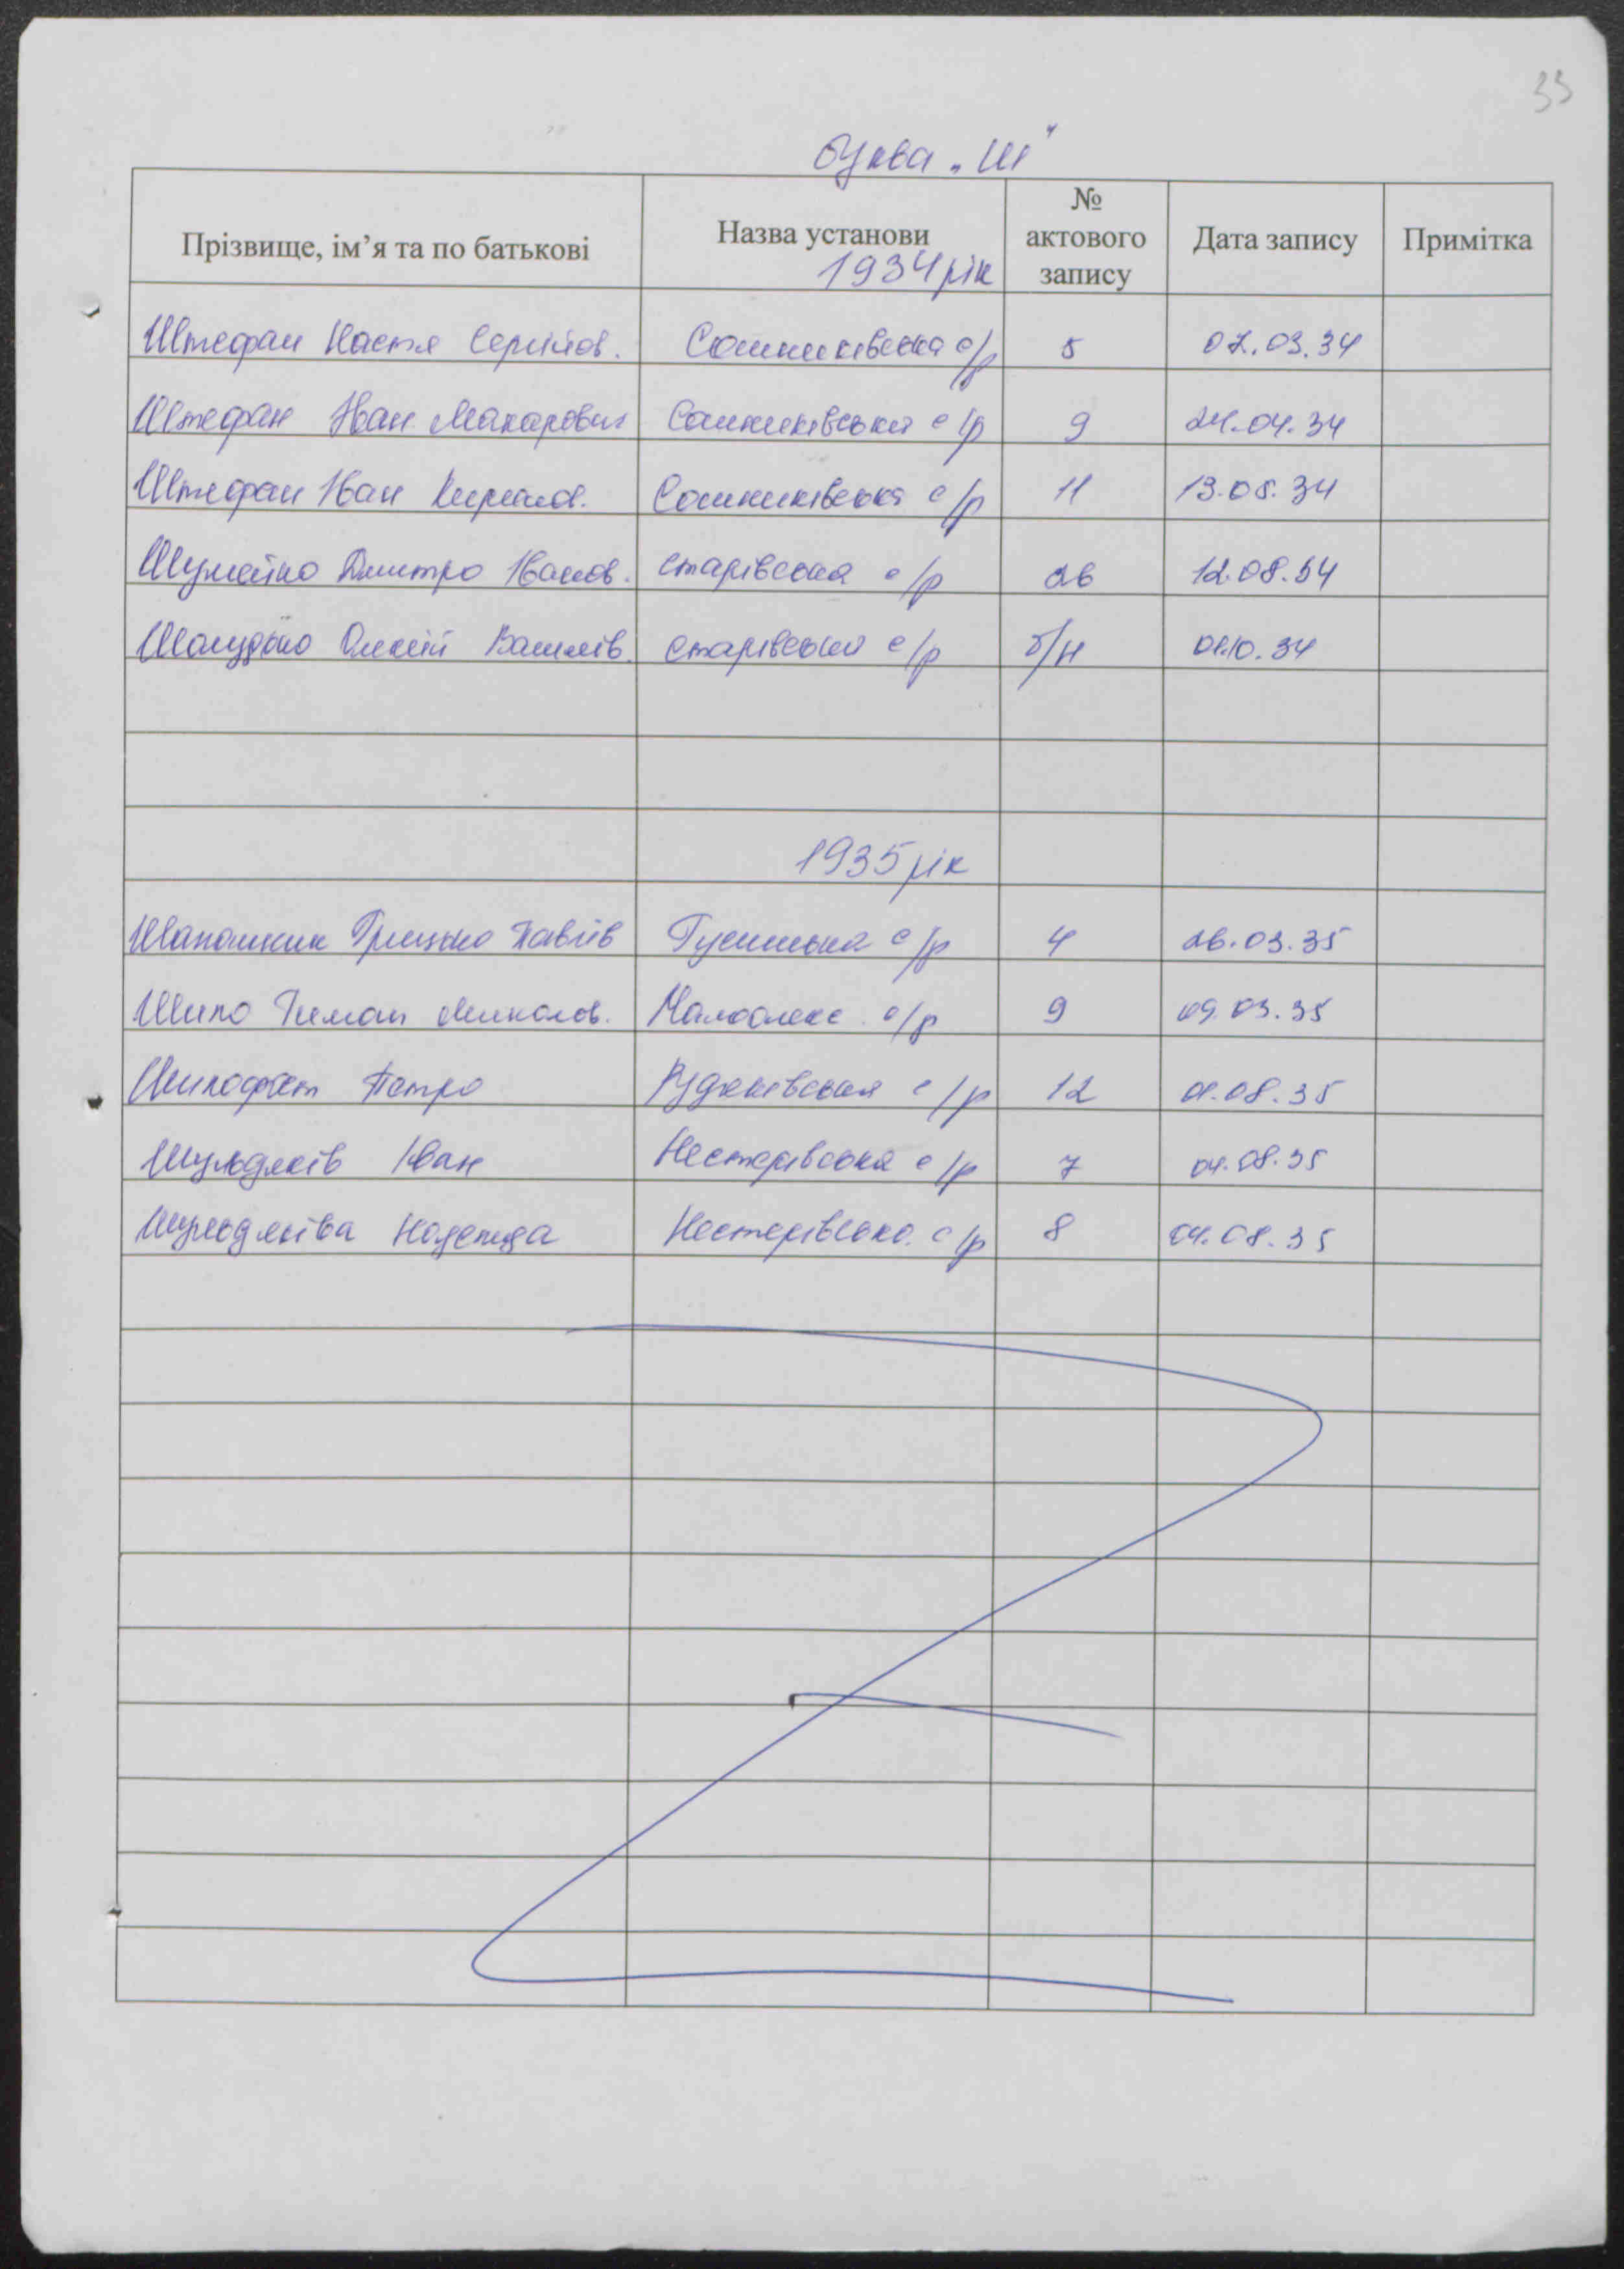 33
буква „Ш"
Прізвище, ім’я та по батькові Назва установи № актового запису Дата запису Примітка
1934 рік
Штефан Настя Сергійов. Сошниківська с/р 5 07.03.34
Штефан Іван Макарович Сошниківська с/р 9 24.04.34
Штефан Іван Кирилов. Сошниківська с/р 11 13.05.34
Шумейко Дмитро Іванов. Старівська с/р 26 12.08.34
Шолудько Олексій Василів. Старівська с/р б/н 01.10.34
1935 рік
Шапошник Грицько Павлів Гусинська с/р 4 26.03.35
Шило Миколов. Малоолекс. с/р 9 09.03.35
Петро Рудяківська с/р 12 01.08.35
Шульдяків Іван Нестерівська с/р 7 04.08.35
Шульдяківа Надежда Нестерівська с/р 8 04.08.35